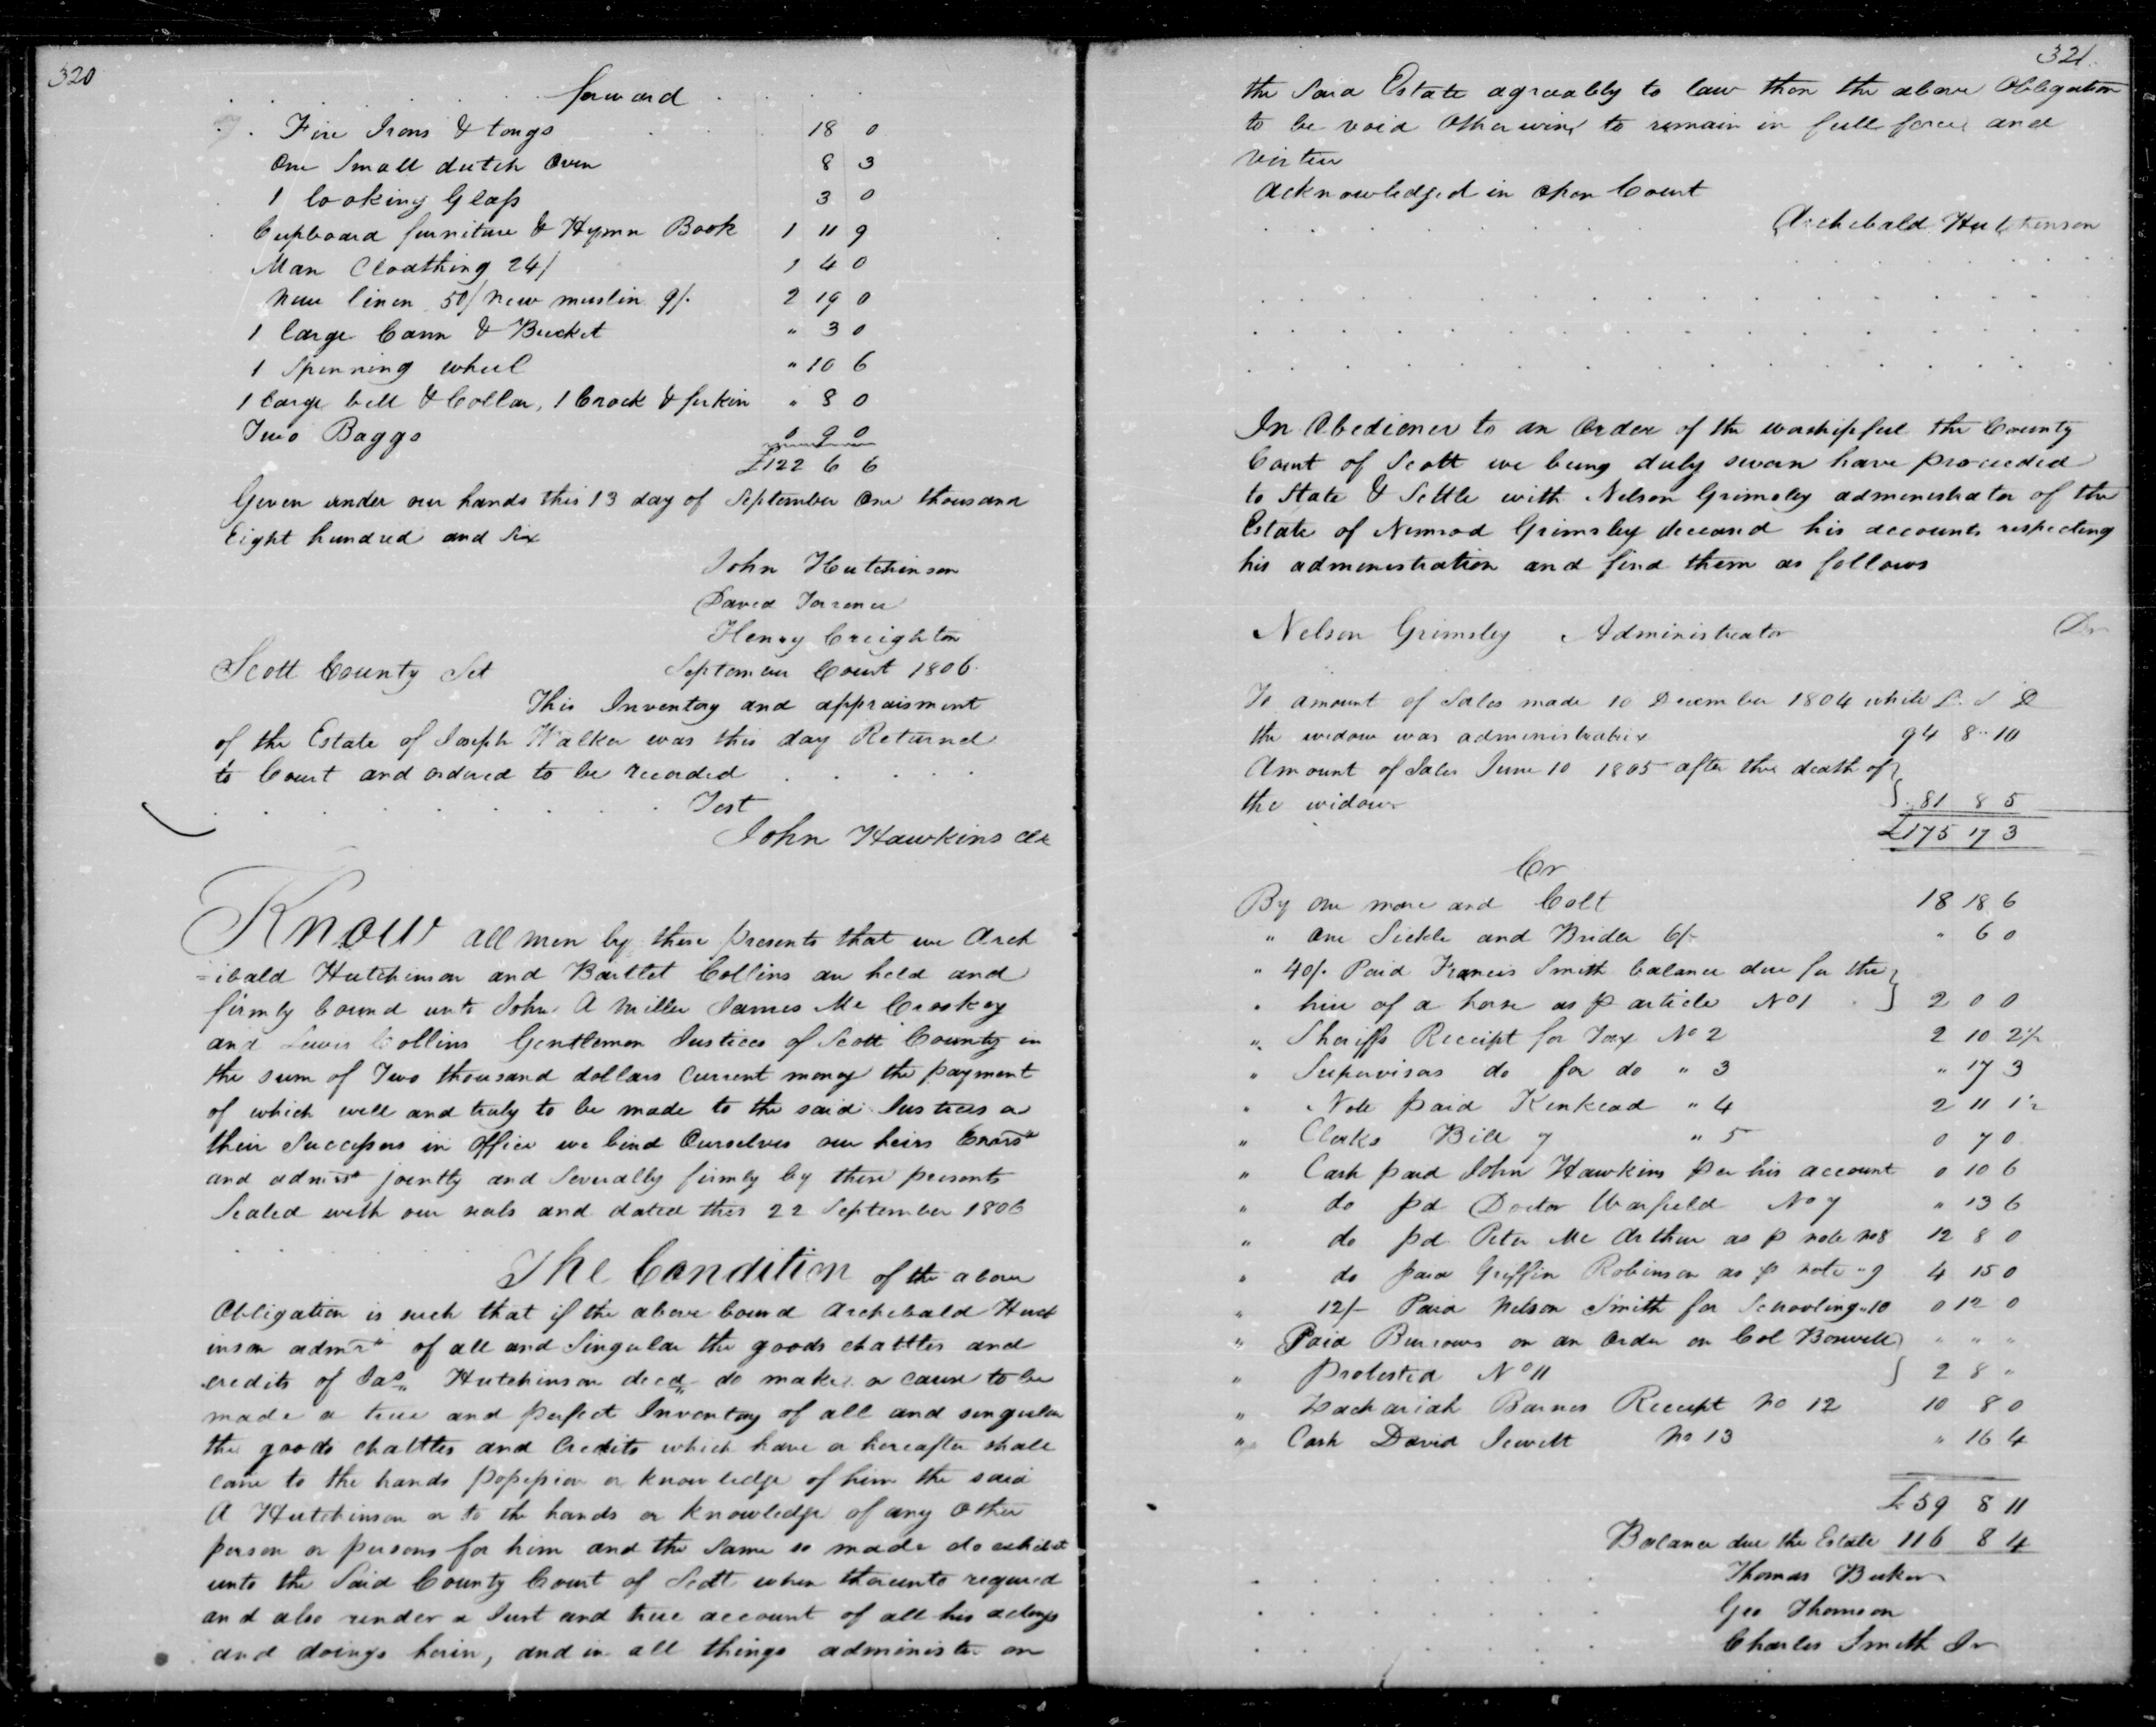 320
forward
Fire Irons & tongs 18 0
One Small dutch Oven 8 3
1 looking Glass 3 0
Cupboard furniture & Hymn Book 1 11 9
Man Cloathing 24/ 1 4 0
New linen 50/ new muslin 9/. 2 19 0
1 large Cann & Bucket " 3 0
1 Spinning wheel " 10 6
1 large bell & Collar, 1 Crock & ferkin " 8 0
Two Baggs 0 9 0
£122 6 6
Given under our hands this 13 day of September One thousand
Eight hundred and Six
John Hutchinson
David Torrence
Henry Creighton
Scott County Sct September Court 1806.
This Inventory and appraisment
of the Estate of Joseph Walker was this day Returned
to Court and ordered to be recorded
Test
John Hawkins Clk
Know all men by these presents that we Arch
=ibald Hutchinson and Bartlet Collins are held and
firmly bound unto John A Miller James Mc Croskey
and Lewis Collins Gentlemen Justices of Scott County in
the sum of Two thousand dollars Current money the payment
of which well and truly to be made to the said Justices or
their Successors in office we bind Ourselves our heirs Exors
and admrs jointly and Severally firmly by these presents
Sealed with our seals and dated this 22 September 1806
The Condition of the above
Obligation is such that if the above bound Archibald Hutch
inson admr of all and Singular the goods chattles and
credits of Jas Hutchinson decd do make or cause to be
made a true and perfect Inventory of all and singular
the goods chattles and Credits which have or hereafter shall
come to the hands possession or knowledge of him the said
A Hutchinson or to the hands or knowledge of any other
person or persons for him and the same so made do exhibit
unto the Said County Court of Scott when thereunto required
and also render a Just and true account of all his actings
and doings herin, and in all things administer on
321.
the said Estate agreeably to law then the above Obligation
to be void Otherwise to remain in full force and
virtue
Acknowledged in open Court
Archibald Hutchinson
In Obedience to an Order of the worshipful the County
Court of Scott we being duly sworn have proceeded
to State & Settle with Nelson Grimsley administrator of the
Estate of Nimrod Grimsley deceasd his accounts respecting
his administration and find them as follows
Nelson Grimsley Administrator Dr
To amount of Sales made 10 December 1804 while £. S D
the widow was administratrix 94 8 " 10
Amount of Sales June 10 1805 after the death of
the widow } 81 8 5
£175 17 3
Cr
By one mare and Colt 18 18 6
" One Sickle and Bridle 6/- " 6 0
" 40/. Paid Francis Smith balance due for the
" hire of a horse as p article No 1 } 2 0 0
" Sheriffs Receipt for Tax No 2 2 10 2½
" Supervisors do for do " 3 " 17 3
" Note paid Kinkead " 4 2 11 1½
" Clerks Bill 7 " 5 0 7 0
" Cash paid John Hawkins per his account 0 10 6
" do pd Doctor Warfield No 7 " 13 6
" do pd Peter Mc Arthur as p note no 8 12 8 0
" do paid Griffin Robinson as p note " 9 4 15 0
" 12/- Paid Nelson Smith for Schooling " 10 0 12 0
" Paid Burrows on an Order on Col Boswell " " "
" Protested No 11 } 2 8 "
" Zachariah Barnes Receipt No 12 10 8 0
" Cash David Jewett No 13 " 16 4
£59 8 11
Balance due the Estate 116 8 4
Thomas
Geo Thomson
Charles Smith Jr